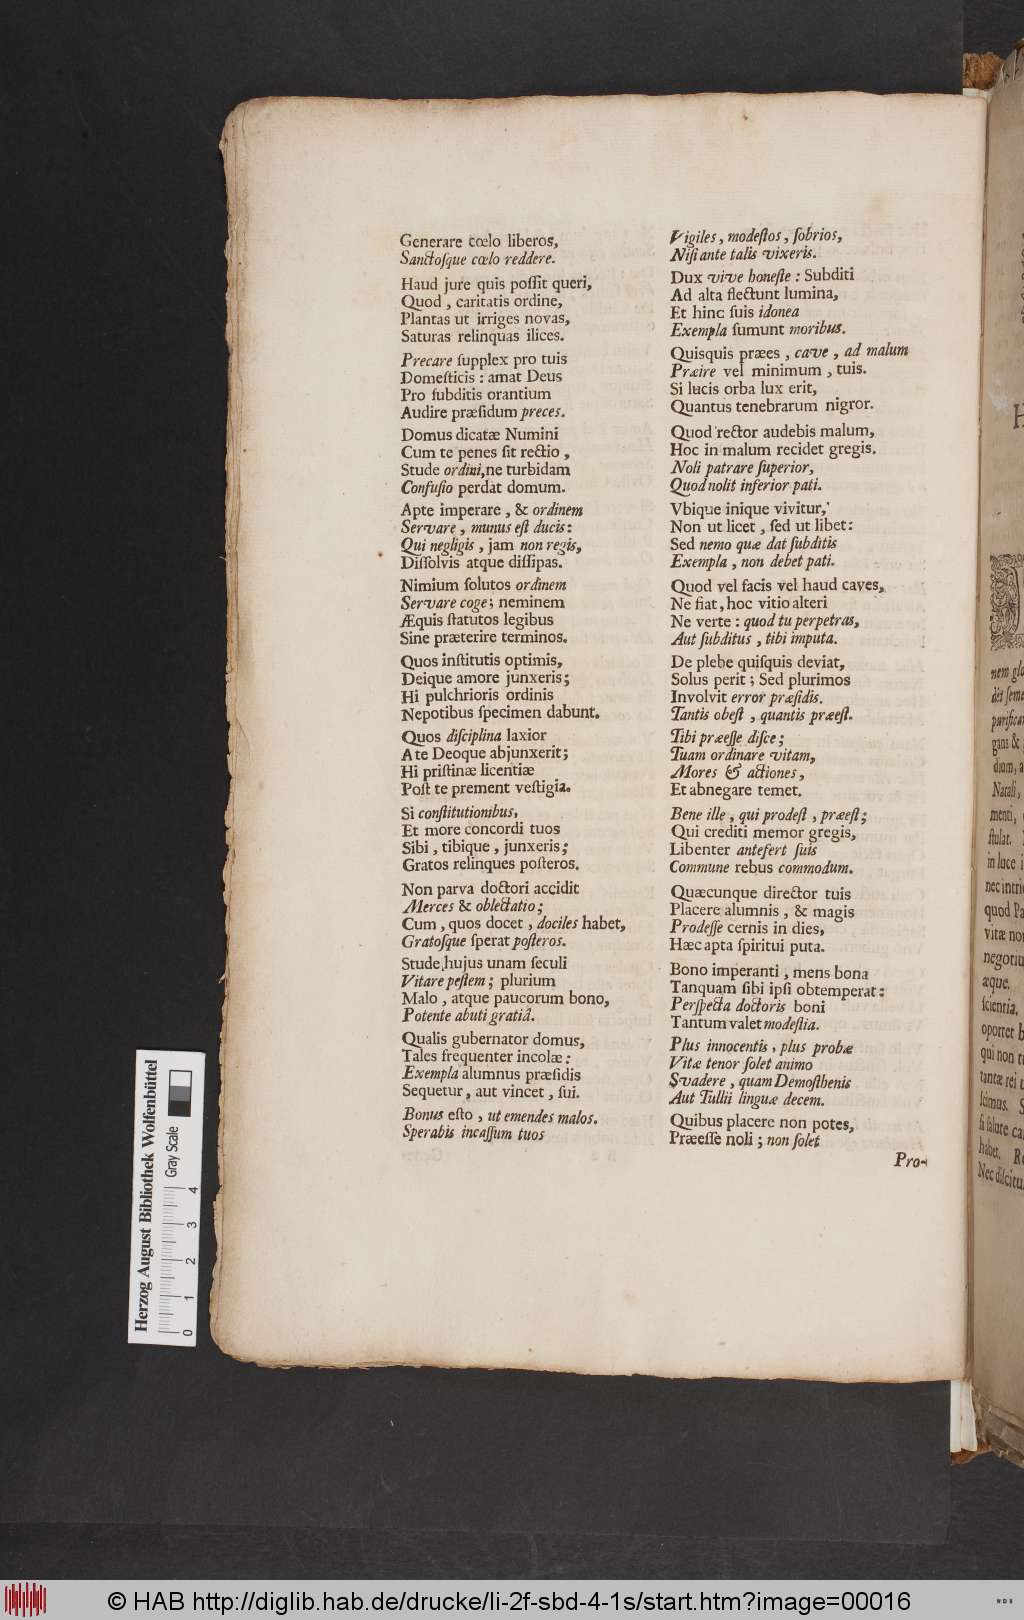 Generare cœlo liberos,
Sanctoſque cœlo reddere.
Haud jure quis poſſit queri,
Quod, caritatis ordine,
Plantas ut irriges novas,
Saturas relinquas ilices.
Precare ſupplex pro tuis
Domeſticis: amat Deus
Pro ſubditis orantium
Audire præſidum preces.
Domus dicatæ Numini
Cum te penes ſit rectio,
Stude ordini, ne turbidam
Confuſio perdat domum.
Apte imperare, & ordinem
Servare, munus eſt ducis:
Qui negligis, jam non regis,
Diſſolvis atque diſſipas.
Nimium ſolutos ordinem
Servare coge; neminem
Æquis ſtatutos legibus
Sine præterire terminos.
Quos inſtitutis optimis,
Deique amore junxeris;
Hi pulchrioris ordinis
Nepotibus ſpecimen dabunt.
Quos diſciplina laxior
A te Deoque abjunxerit;
Hi priſtinæ licentiæ
Poſt te prement veſtigia.
Si conſtitutionibus,
Et more concordi tuos
Sibi, tibique, junxeris;
Gratos relinques poſteros.
Non parva doctori accidit
Merces & oblectatio;
Cum, quos docet, dociles habet,
Gratoſque ſperat poſteros.
Stude, hujus unam ſeculi
Vitare peſtem; plurium
Malo, atque paucorum bono,
Potente abuti gratiâ.
Qualis gubernator domus,
Tales frequenter incolæ:
Exempla alumnus præſidis
Sequetur, aut vincet, ſui.
Bonus eſto, ut emendes malos.
Sperabis incaſſum tuos
Vigiles, modeſtos, ſobrios,
Niſi ante talis vixeris.
Dux vive honeſte: Subditi
Ad alta flectunt lumina,
Et hinc ſuis idonea
Exempla ſumunt moribus.
Quisquis præes, cave, ad malum
Præire vel minimum, tuis.
Si lucis orba lux erit,
Quantus tenebrarum nigror.
Quod rector audebis malum,
Hoc in malum recidet gregis.
Noli patrare ſuperior,
Quod nolit inferior pati.
Vbique inique vivitur,
Non ut licet, ſed ut libet:
Sed nemo quæ dat ſubditis
Exempla, non debet pati.
Quod vel facis vel haud caves,
Ne fiat, hoc vitio alteri
Ne verte: quod tu perpetras,
Aut ſubditus, tibi imputa.
De plebe quiſquis deviat,
Solus perit; Sed plurimos
Involvit error præſidis.
Tantis obeſt, quantis præeſt.
Tibi præeſſe diſce;
Tuam ordinare vitam,
Mores & actiones,
Et abnegare temet.
Bene ille, qui prodeſt, præeſt;
Qui crediti memor gregis,
Libenter antefert ſuis
Commune rebus commodum.
Quæcunque director tuis
Placere alumnis, & magis
Prodeſſe cernis in dies,
Hæc apta ſpiritui puta.
Bono imperanti, mens bona
Tanquam ſibi ipſi obtemperat:
Perſpecta doctoris boni
Tantum valet modeſtia.
Plus innocentis, plus probæ
Vitæ tenor ſolet animo
Svadere, quam Demoſthenis
Aut Tullii linguæ decem.
Quibus placere non potes,
Præeſſe noli; non ſolet
Pro-
H
nem glo
dit ſeme
purifica
gans &
dium, a
Natali,
menti,
ſtulat.
in luce i
nec intri
quod Pa
vitæ no
negotiu
æque.
ſcientia,
oportet h
qui non t
tantæ rei
ſcimus. S
ſi ſalute ca
habet. R
Nec diſcitu
Herzog August Bibliothek Wolfenbüttel
Gray Scale
0 1 2 3 4
© HAB http://diglib.hab.de/drucke/li-2f-sbd-4-1s/start.htm?image=00016